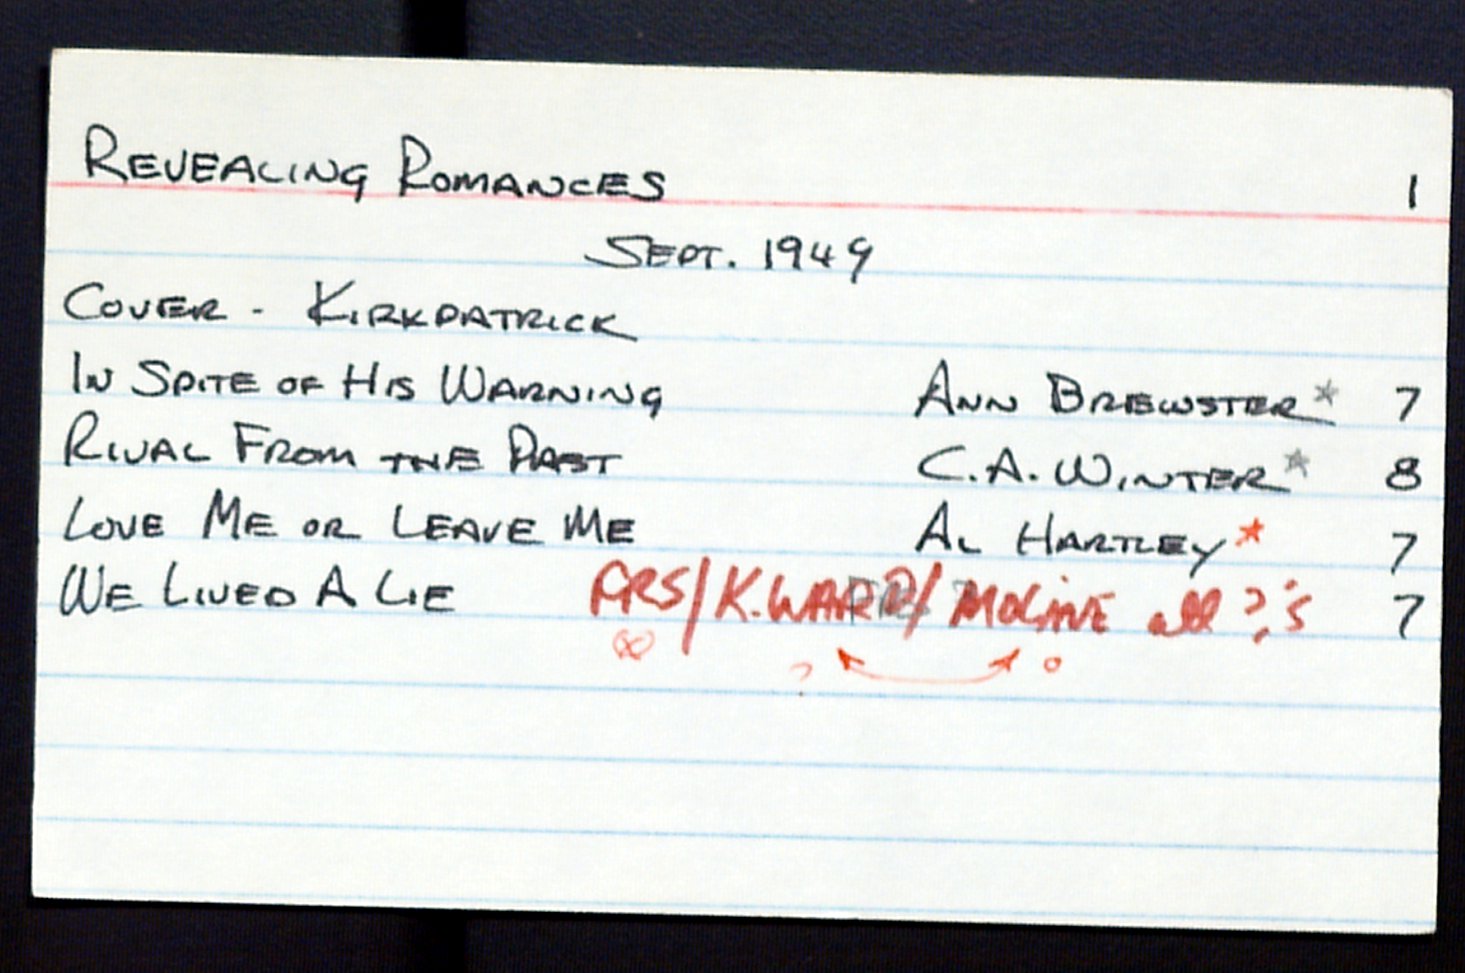 REVEALING ROMANCES 1
SEPT. 1949
COVER - KIRKPATRICK
IN SPITE OF HIS WARNING ANN BREWSTER* 7
RIVAL FROM THE PAST C.A. WINTER* 8
LOVE ME OR LEAVE ME AL HARTLEY* 7
WE LIVED A LIE /K.WARR/ MOLINE all ?'s 7
?